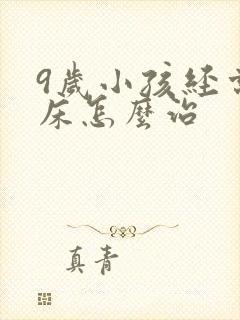 9歲小孩經常尿
床怎麼治
真青